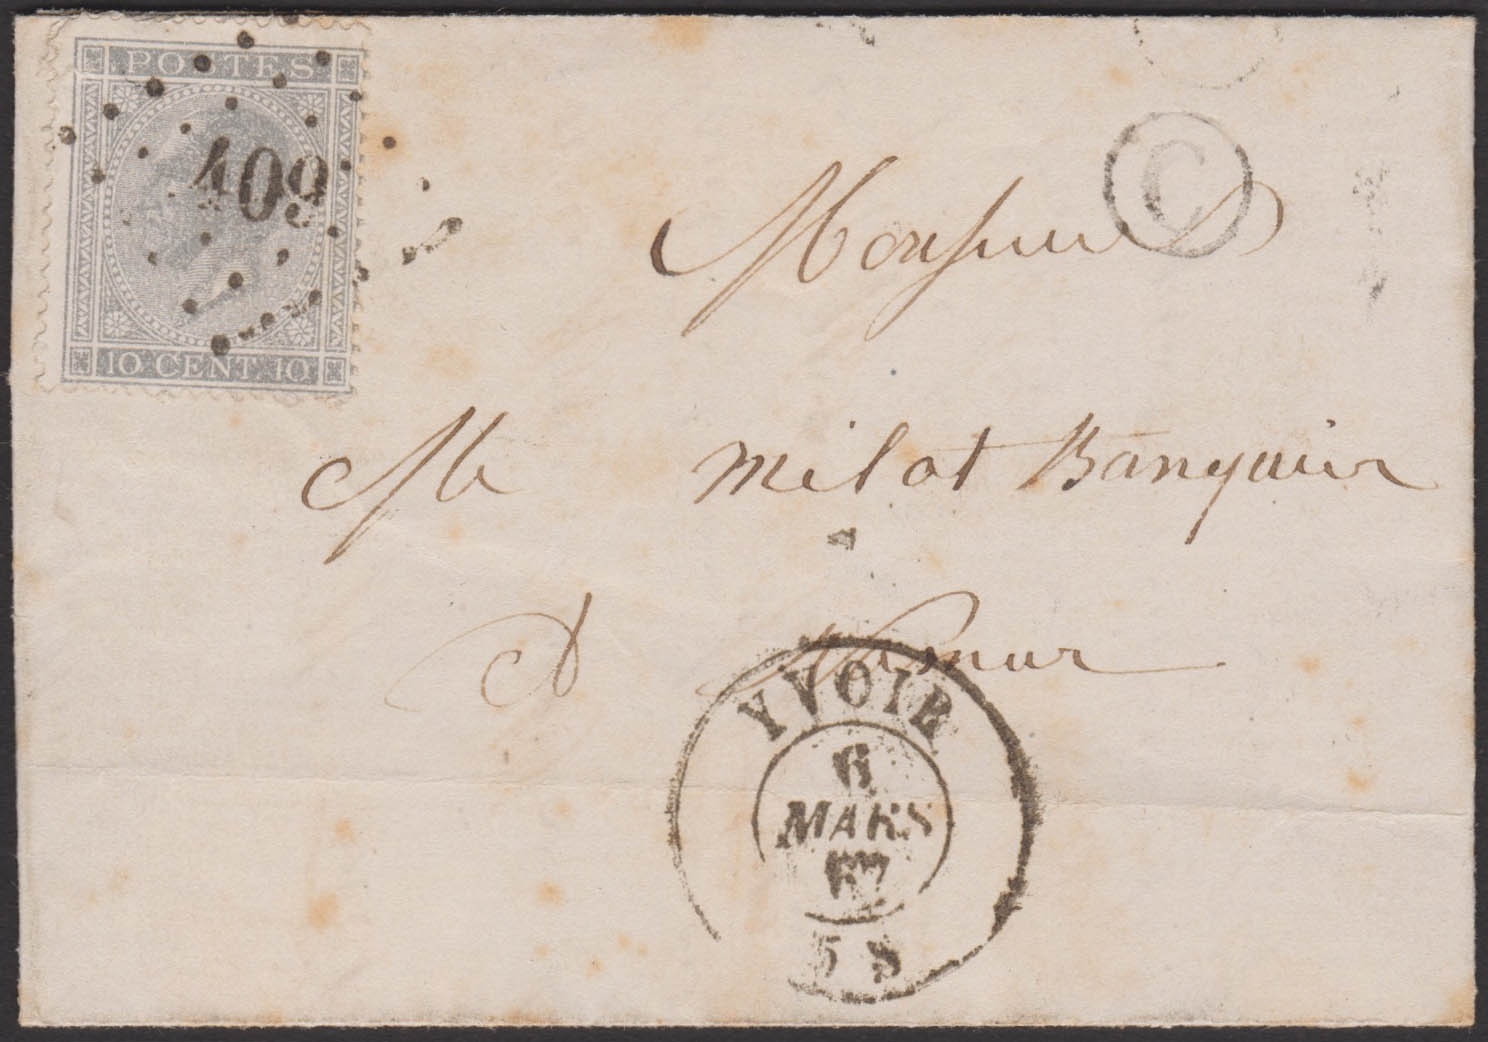 POSTES
409
10 CENT 10
C
Monsieur
Mr Milot Banquier
A Namur
YVOIR
6
MARS
67
5 S